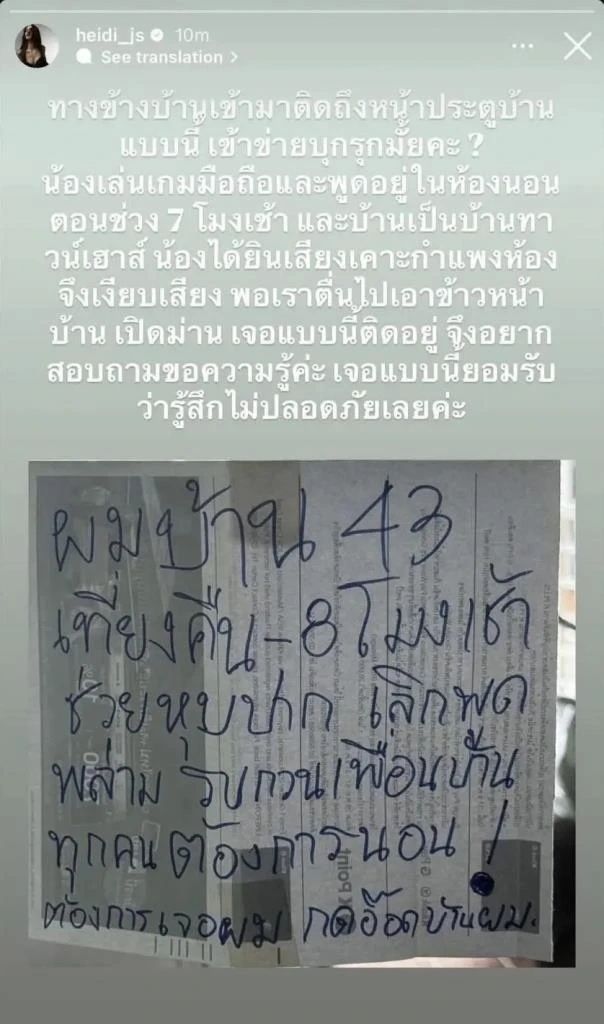 heidi_js 10m
See translation >
ทางข้างบ้านเข้ามาติดถึงหน้าประตูบ้าน
แบบนี้ เข้าข่ายบุกรุกมั้ยคะ ?
น้องเล่นเกมมือถือและพูดอยู่ในห้องนอน
ตอนช่วง 7 โมงเช้า และบ้านเป็นบ้านทา
วน์เฮาส์ น้องได้ยินเสียงเคาะกำแพงห้อง
จึงเงียบเสียง พอเราตื่นไปเอาข้าวหน้า
บ้าน เปิดม่าน เจอแบบนี้ติดอยู่ จึงอยาก
สอบถามขอความรู้ค่ะ เจอแบบนี้ยอมรับ
ว่ารู้สึกไม่ปลอดภัยเลยค่ะ
ผมบ้าน 43
เที่ยงคืน - 8 โมงเช้า
ช่วยหุบปาก เลิกพูด
พล่าม รบกวนเพื่อนบ้าน
ทุกคนต้องการนอน !
ต้องการเจอผม กดอ๊อดบ้านผม.